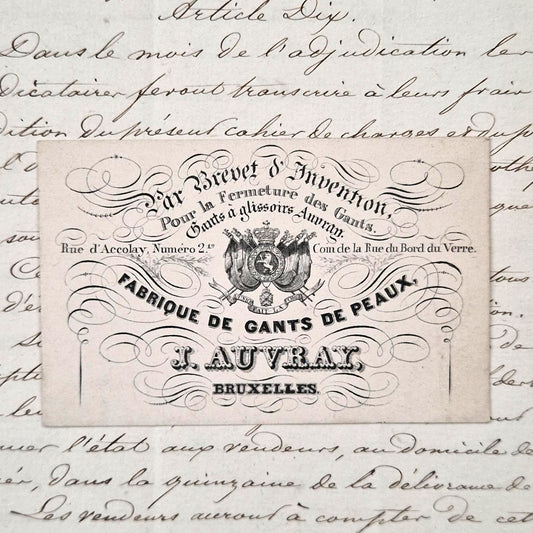 Article Dix.
Dans le mois de l'adjudication les
dicataires feront transcrire à leurs frais
dition du présent cahier de charges et du p
Par Brevet d'Invention,
Pour la Fermeture des Gants.
Gants à glissoirs Auvray.
Rue d'Accolay, Numéro 2. Coin de la Rue du Bord du Verre.
FABRIQUE DE GANTS DE PEAUX,
J. AUVRAY,
BRUXELLES.
l'état aux vendeurs, au domicile de
dans la quinzaine de la délivrance de
Les vendeurs auront à compter de cet